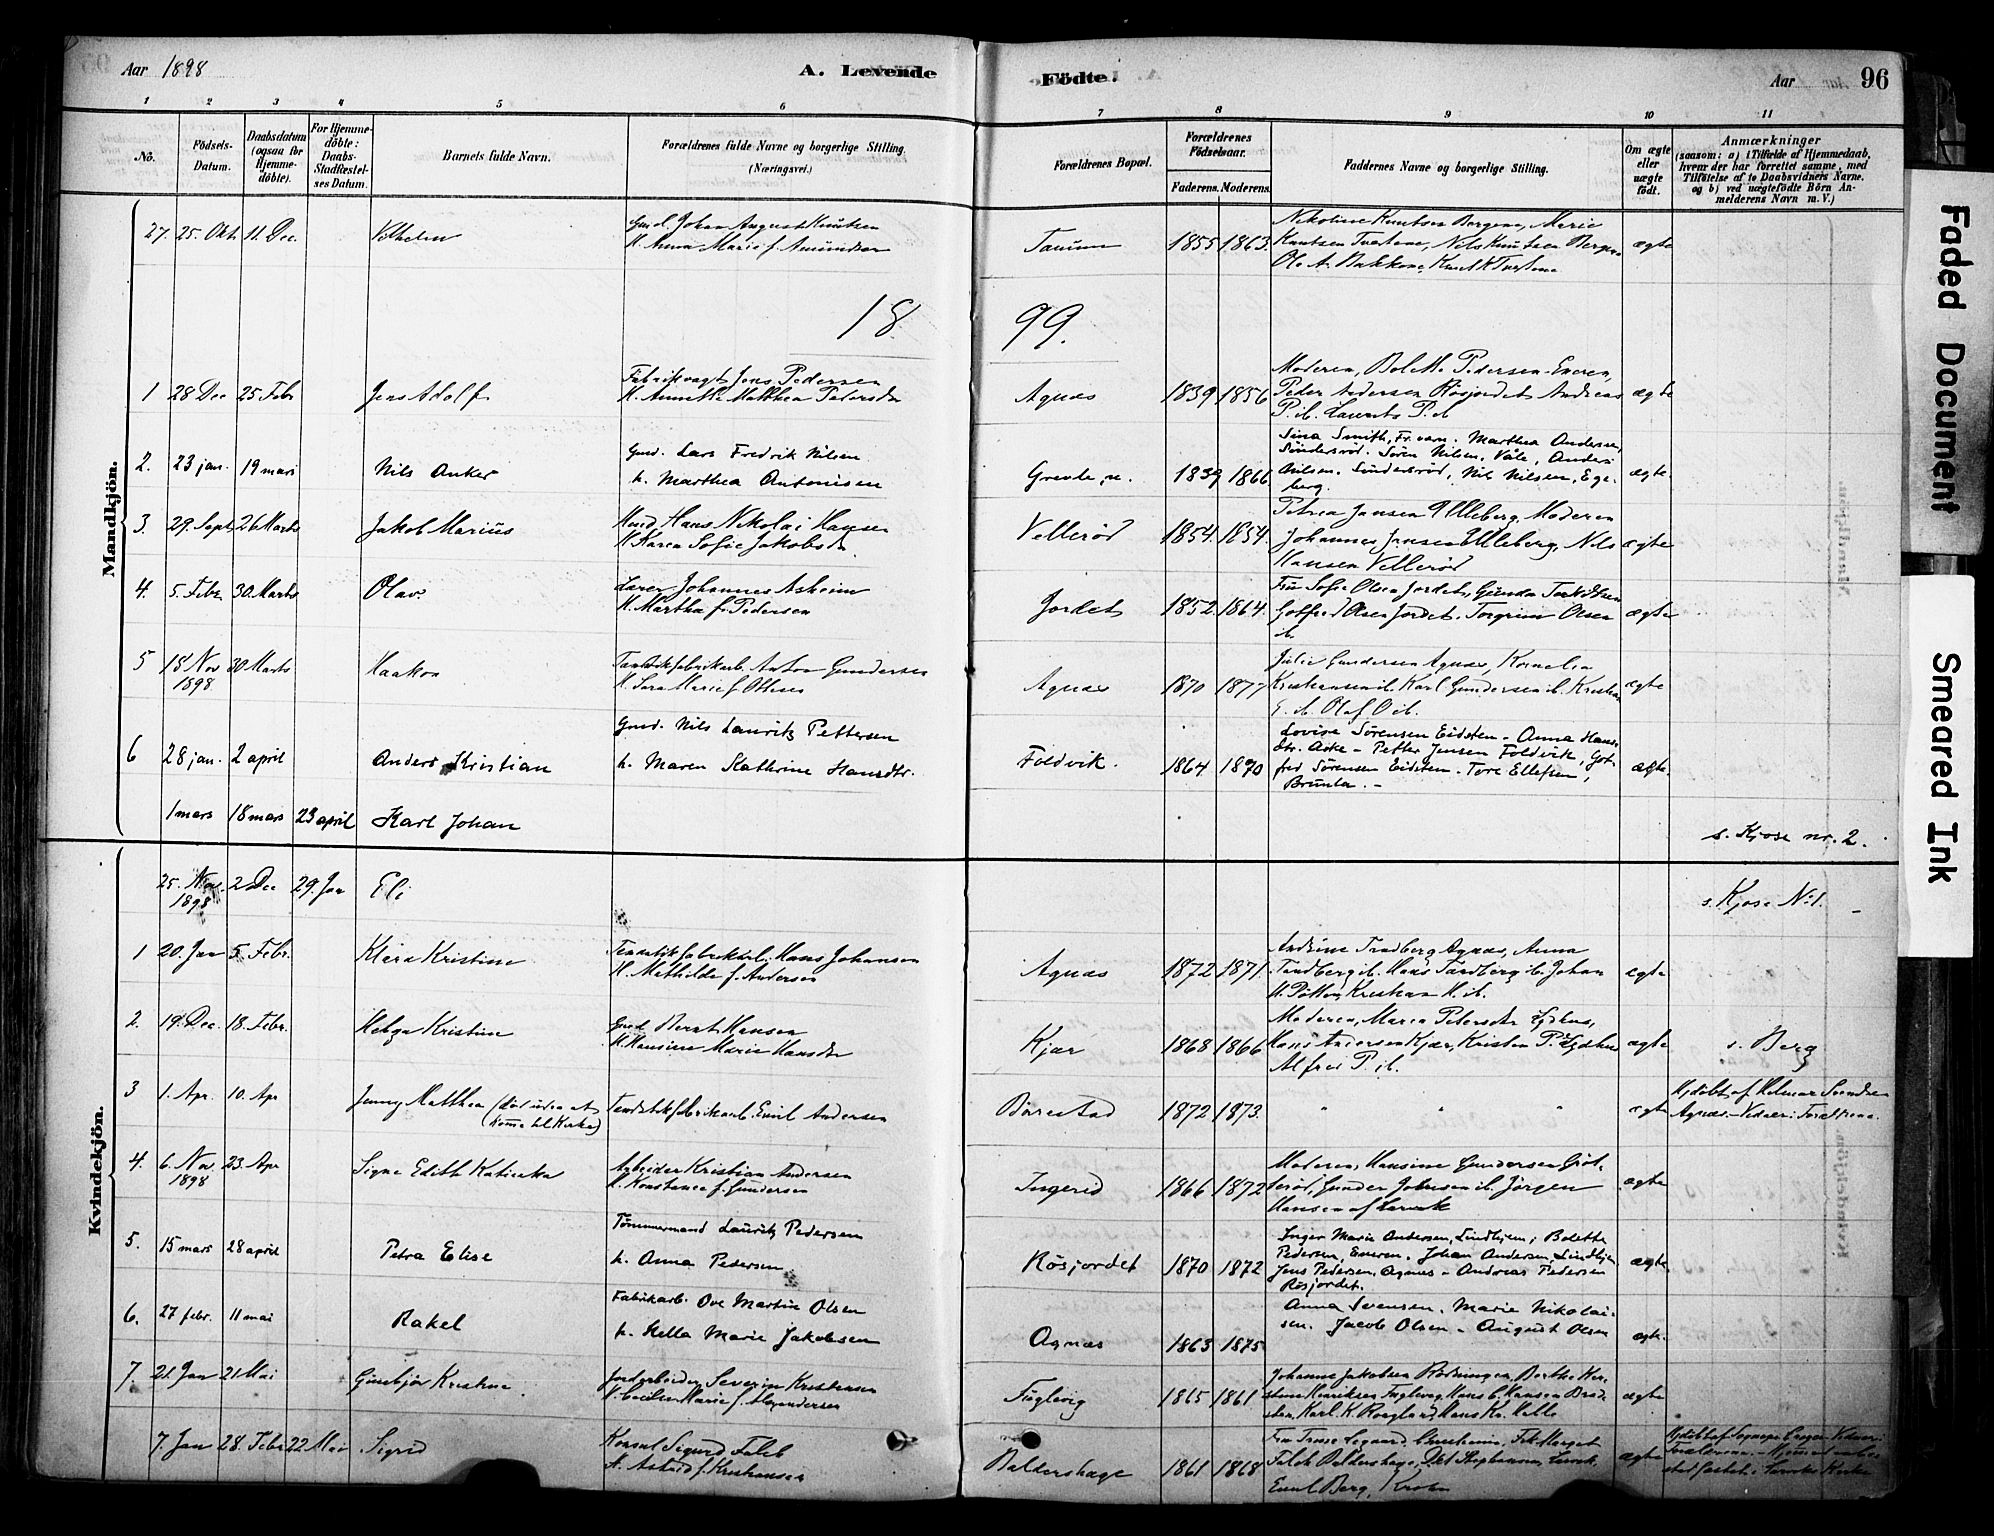 Aar 1898
A. Levende Födte.
Aar 96
1 2 3 4 5 6 7 8 9 10 11
No.
Födsels-Datum.
Daabsdatum (ogsaa for Hjemme-döbte).
For Hjemme-döbte: Daabs-Stadfæstel-ses Datum.
Barnets fulde Navn.
Forældrenes fulde Navne og borgerlige Stilling.
(Næringsvei.)
Forældrenes Bopæl.
Forældrenes Födselsaar.
Faderens. Moderens.
Faddernes Navne og borgerlige Stilling.
Om ægte eller uægte födt.
Anmærkninger
(saasom: a) i Tilfælde af Hjemmedaab, hvem der har forrettet samme, med Tilføielse af to Daabsvidners Navne, og b) ved uægtefödte Börn An-melderens Navn m. V.)
Mandkjön.
27. 25. Okt. 11. Dec. Vilhelm
Gmd. Johan August Knutsen
H. Anna Marie f. Amundsen
Tanum 1855 1863
Nikoline Knutsen Bergene, Marie
Knutsen Tvetene, Nils Knutsen Bergene
Ole A. Bakkene, Knut K Tvetene
ægte
1899.
1 28 Dec 25 Febr Jens Adolf
Fabrikvagt Jens Pedersen
H. Annette Mathea Pedersdr
Agnæs 1839 1856
Moderen, Bolette Pedersen Eneren,
Peder Andersen Rösjordet Andreas
P. ib. Laurits P. ib
ægte
2. 23 jan. 19 mars Nils Anker
Gmd. Lars Fredrik Nilsen
h. Marthea Antonisen
Grevle, n. 1839 1866
Sina Smith, Fr.værn. Marthea Andersen,
Söndersröd. Sören Nilsen, Våle, Anders
Nilsen, Söndersröd, Nils Nilsen, Ege-
berg.
ægte.
3. 29. Sept 26 Marts Jakob Marius
Hans Nikolai Hansen
H. Karen Sofie Jakobsdr.
Velleröd 1854. 1854.
Petrea Jansen Ulleberg, Moderen
Johannes Jansen Ulleberg, Nils
Hansen Velleröd
ægte
4. 5. Febr. 30. Marts Olav
Lærer Johannes Asheim
H. Martha f. Pedersen
Jordet 1852. 1864.
Fru Sofie Olsen Jordet, Gunda
Gotfred Olsen Jordet. Torgrim Olsen
ib.
ægte
5 18 Nov 1898 30 Marts Haakon
Tændstikfabrikarb. Anton Gundersen
H. Sara Marie f. Ottesen
Agnæs 1870 1877
Julie Gundersen Agnæs, Kornelia
Kristiansen ib. Karl Gundersen ib. Kristian
G. ib. Olaf O ib.
ægte
6 28 jan. 2 april Anders Kristian
Gmd. Nils Lauritz Pettersen
h. Maren Kathrine Hansdtr.
Foldvik. 1864 1870
Lovise Sörensen Eidsten - Anna Hans-
dtr. Aske - Petter Jensen Foldvik, Got-
fred Sörensen Eidsten - Tore Ellefsen,
Brunla. -
ægte.
1 mars 18 mars 23 april Karl Johan
s. Kjose nr. 2.
Kvindekjön.
25. Nov. 1898 2 Dec 29. Jan Eli
s. Kjose No 1.
1 20. Jan 5. Febr. Klara Kristine
Tændstikfabrikarb. Hans Johansen
H. Mathilde f. Andersen
Agnæs 1872 1871.
Andrine Tandberg Agnæs, Anna
Tandberg ib. Hans Tandberg ib. Johan
Kristian H. ib.
ægte
2. 19. Dec. 18. Febr. Helga Kristine
Gmd Bernt Hansen
H. Hansine Marie Hansdr
Kjær 1868 1866
Moderen, Maren Petersdtr
Hans Andersen Kjær, Kristen P.
Alfred P. ib.
ægte
s. Berg
3 1. Apr. 10. Apr Jenny Matthea (död uden at komme til Kirke)
Tændstikfabrikarb. Emil Andersen
Börestad 1872 1873.
" " "
ægte
Hjdöbt af Helmer Svendsen
Agnæs. - Vidner: Forældrene.
4. 6. Nov. 1898 23. Apr Signe Edith Katinka
Arbeider Kristian Andersen
H. Konstance f. Gundersen
Ingerid 1866 1872
Moderen, Hansine Gundersen Gröt-
teröd, Gunder Johnsen ib. Jörgen
Hansen af Larvik
ægte
5. 15 mars 28 april Petra Elise
Tömmermand Lauritz Pedersen
h. Anna Pedersen
Rösjordet 1870 1872
Inger Marie Andersen, Lindhjem; Bolette
Pedersen, Eneren. Johan Andersen, Lindhjem
Jens Pedersen, Agnæs - Andreas Pedersen
Rösjordet.
ægte
6. 27 febr. 11 mai Rakel
Fabrikarb. Ove Martin Olsen
h. Hella Marie Jakobsen
Agnæs 1863 1875
Anna Sörensen. Marie Nikolai-
sen. Jacob Olsen - August Olsen
ægte.
7. 21. Jan 21 Mai Gunbjör Kristine.
Jordarbeider Severin Kristensen
H. Marie f. Alexandersen
Fuglevig 1865 1861
Johanne Jakobsen Rödningen, Berthe Kir-
stine Henriksen Fuglevig, Hans C. Hansen
Karl K. Hans Kr. Halle
ægte
7. Jan 28. Febr 22 Mai Sigrid
Konsul Sigurd Falck
H. Astrid f. Kristiansen
Baldershage 1861 1868
Kristiania, Frk. Margit
Falck Baldershage, Larvik
Emil Berg, Krohn
ægte
Faded Document
Smeared Ink